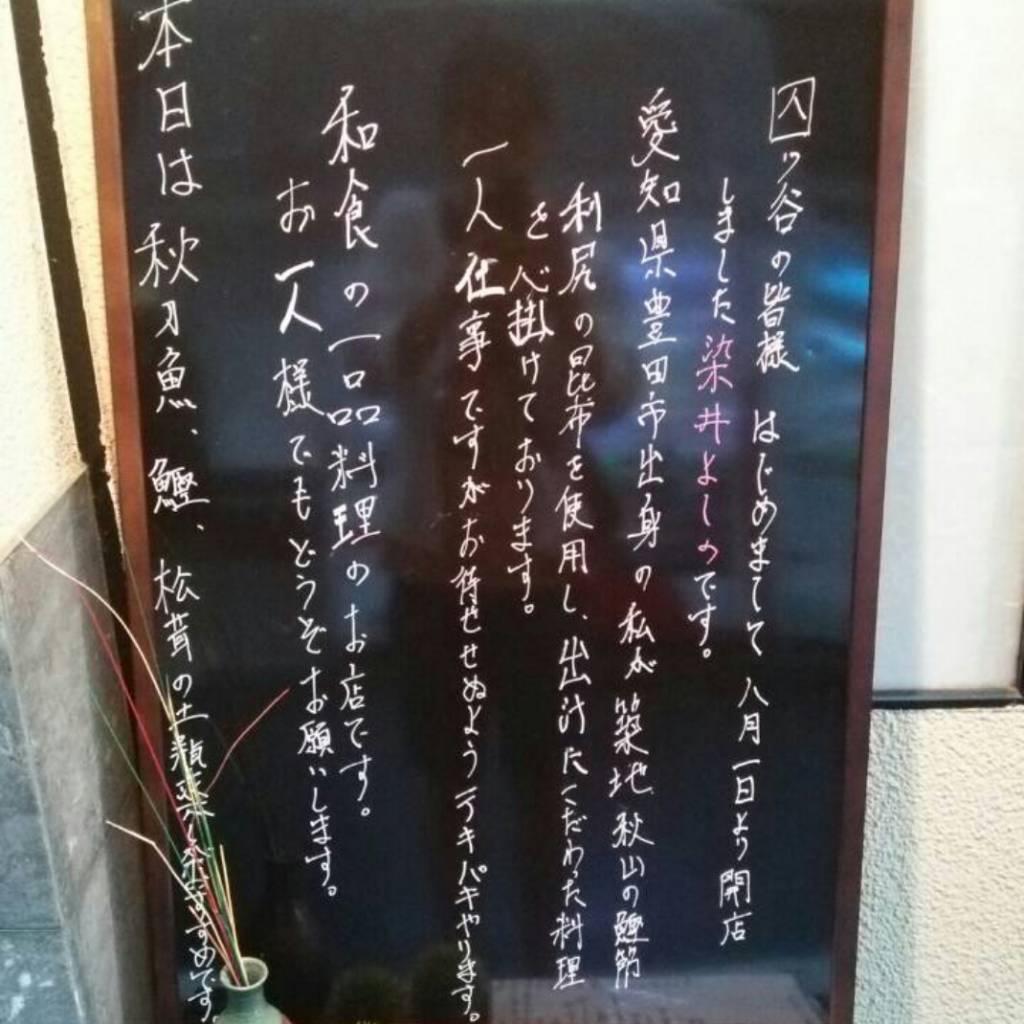 囚ツ谷の皆様 はじめまして 八月一日より開店
しました染井よしのです。
愛知県豊田市出身の私が築地秋山の鰹節
利尻の昆布を使用し、出汁にくだわった料理
を心掛けております。
一人仕事ですがお待せせぬようテキパキやります。
和食の一品料理のお店です。
お一人様でもどうぞお願いします。
本日は秋刀魚、鰹、松茸の土瓶蒸しおすすめです。